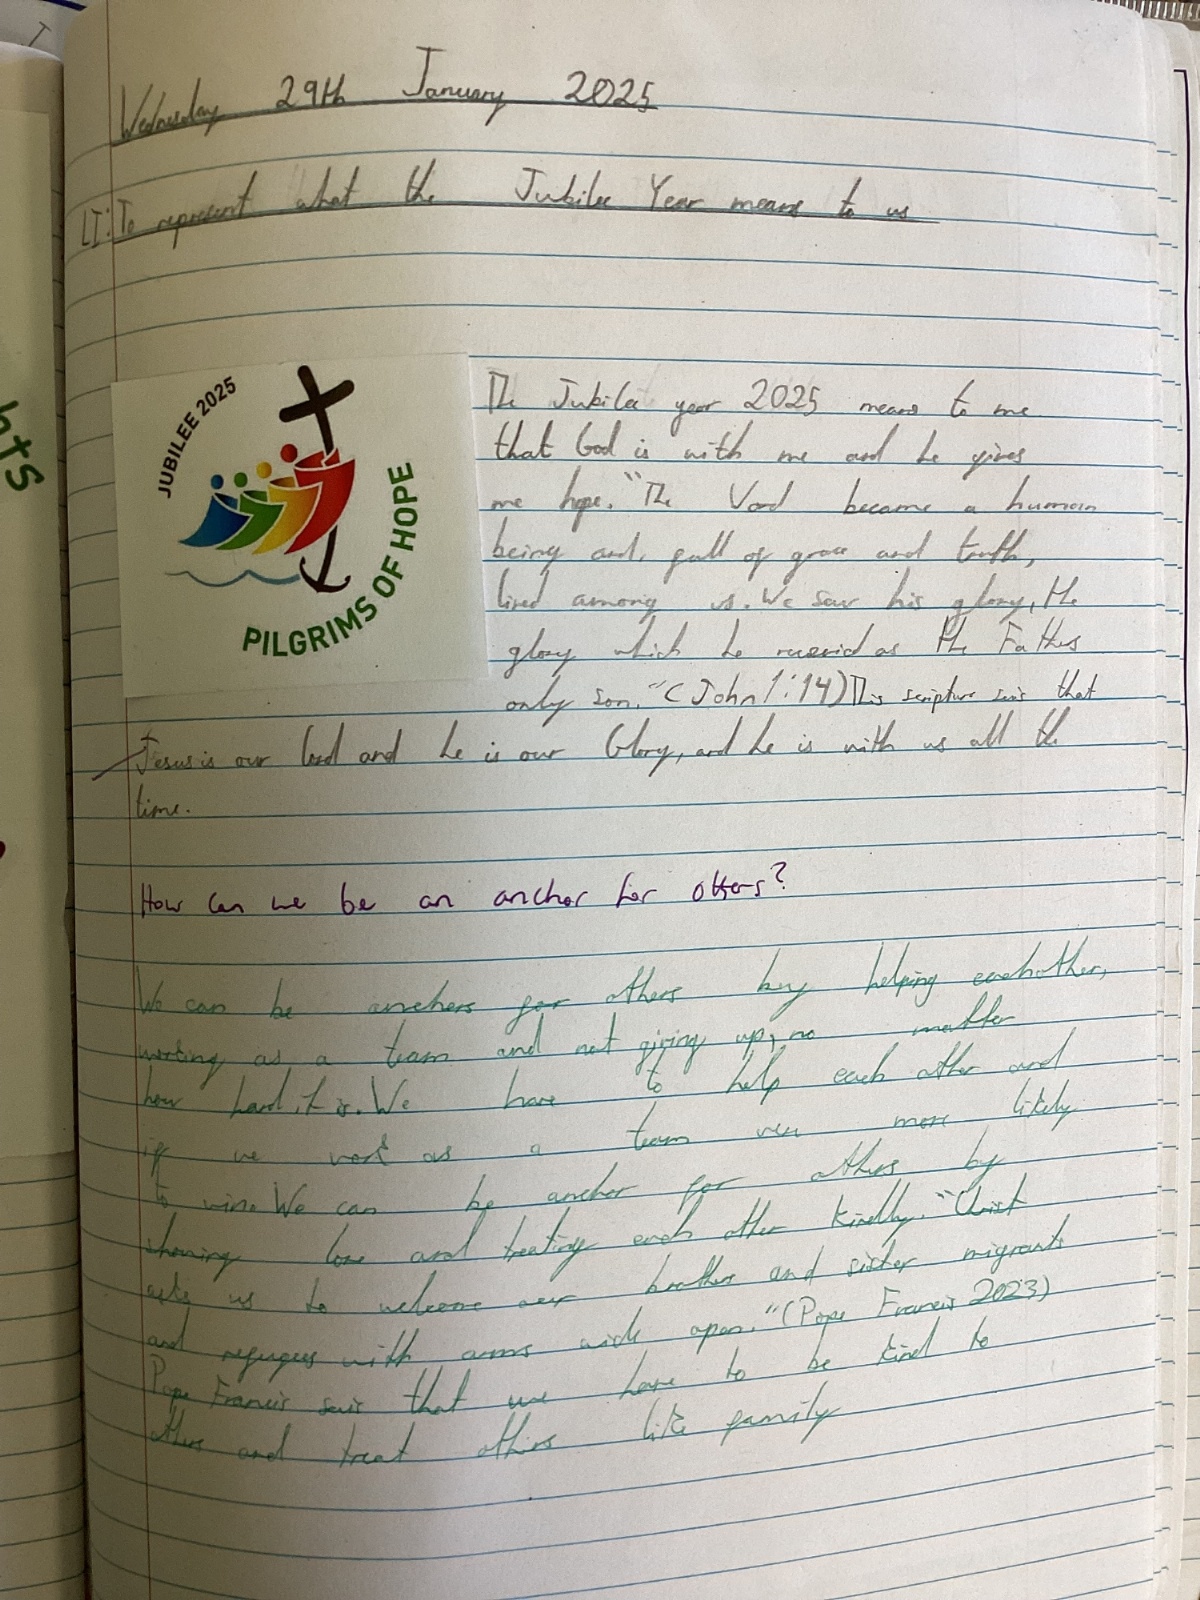 Wednesday 29th January 2025
LI: To represent what the Jubilee Year means to us
JUBILEE 2025
PILGRIMS OF HOPE
The Jubilee year 2025 means to me
that God is with me and he gives
me hope. "The Word became a human
being and, full of grace and truth,
lived among us. We saw his glory, the
glory which he received as the Fathers
only son." (John 1:14) This scripture says that
Jesus is our Lord and he is our Glory, and he is with us all the
time.
How can we be an anchor for others?
We can be anchors for others by helping eachother,
working as a team and not giving up, no matter
how hard it is. We have to help each other and
if we work as a team were more likely
to win. We can be anchor for others by
showing love and treating each other kindly. "Christ
asks us to welcome our brother and sister migrants
and refugees with arms wide open." (Pope Francis 2023)
Pope Francis says that we have to be kind to
others and treat others like family
hts